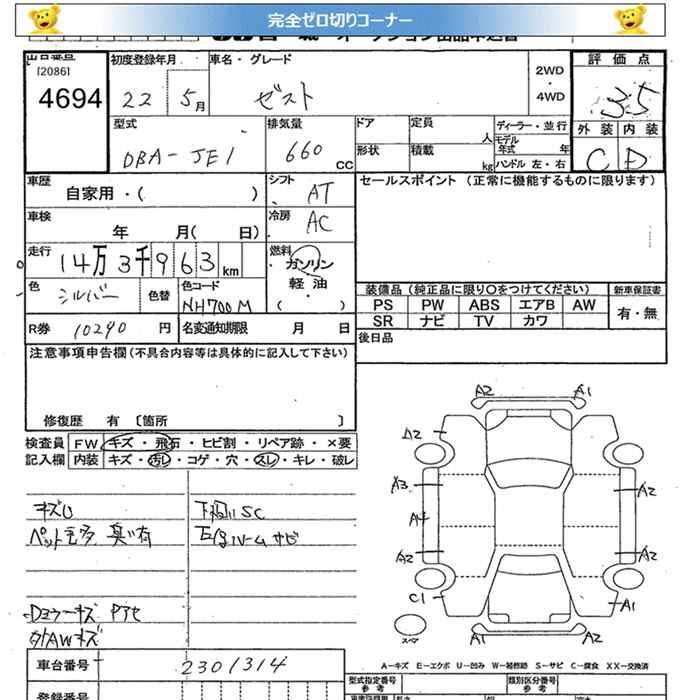 完全ゼロ切りコーナー
出品番号
[2086]
4694
初度登録年月
22 5月
車名・グレード
ゼスト
2WD
・
4WD
評価点
3.5
外装 内装
C D
型式
DBA-JE1
排気量
660 CC
ドア
定員
人
形状
積載
kg
ディーラー・並行
モデル年式 年
ハンドル 左・右
車歴
自家用・( )
シフト
AT
セールスポイント (正常に機能するものに限ります)
車検
年 月( 日)
冷房
AC
走行
14万3千963km
燃料
ガソリン
軽油
( )
色
シルバー
色替
色コード
NH700M
装備品(純正品に限り○をつけてください)
PS PW ABS エアB AW
SR ナビ TV カワ
新車保証書
有・無
R券 10290 円
名変通知期限 月 日
後日品
注意事項申告欄(不具合内容等は具体的に記入して下さい)
修復歴 有 〔箇所 〕
検査員
記入欄
FW キズ・飛石・ヒビ割・リペア跡・×要
内装 キズ・汚レ・コゲ・穴・スレ・キレ・破レ
下廻りSC
ペット毛多 臭い有
外AWキズ
A2 A1
A2
A3 A2
A4
A2 A2
C1 A1
A1 A2
スペア
A-キズ E-エクボ U-凹み W-補修跡 S-サビ C-腐食 XX-交換済
車台番号 2301314
登録番号
型式指定番号
参考
類別区分番号
参考